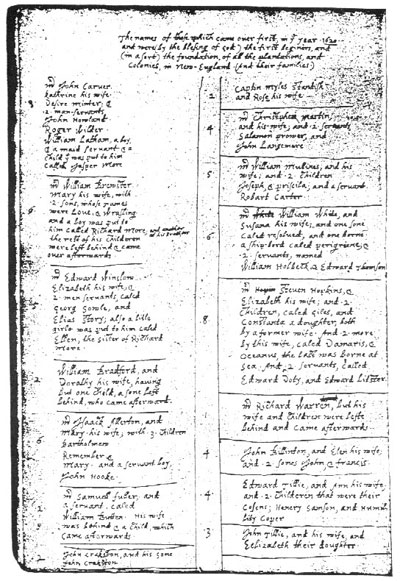 The names of those which came over first, in yᵉ year 1620
and were by the blesing of God the first beginers, and
(in a sort) the foundation, of all the plantations, and
Colonies, in New-England (And their families)
8
mʳ John Carver
kathrine his wife
Desire minter, &
2. man-servants
John Howland
Roger Wilder
William Latham, a boy
& a maid servant, & a
child yᵗ was put to him
called Jasper More
6
mʳ William Brewster
Mary his wife, with
2. sons, whose names
were Love, & Wrasling
and a boy was put to
him called Richard More, and another
of his brothers
the rest of his children
were left behind & came
over afterwards
5
mʳ Edward Winslow
Elizabeth his wife, &
2. men servants, caled
Georg Sowle, and
Elias Story; also a litle
girle was put to him caled
Ellen, the sister of Richard
More
2
William Bradford, and
Dorothy his wife, having
but one child, a sone left
behind, who came afterward
6
mʳ Isaack Allerton, and
Mary his wife; with 3. children
Bartholmew
Remember &
Mary. and a servant boy
John Hooke
2
mʳ Samuel fuller, and
a servant, caled
William Butten. His wife
was behind & a child, which
came afterwards
John Crakston, and his sone
John Crakston
2
Captin Myles Standish
and Rose his wife
4
mʳ Christopher Martin,
and his wife; and 2. servants,
Salamon prower, and
John Langemore
5
mʳ William Mullines, and his
wife; and 2. children
Joseph, & priscila; and a servant
Robart Carter
6
mʳ White William White, and
Susana his wife; and one sone
caled resolved, and one borne
a ship-bord caled perigriene; &
2. servants, named
William Holbeck, & Edward Thomson
8
mʳ Steven Hopkins, &
Elizabeth his wife; and 2.
children, caled Giles, and
Constanta a doughter, both
by a former wife. And 2. more
by this wife, caled Damaris, &
Oceanus, the last was borne at
sea. And 2. servants, called
Edward Doty, and Edward Litster
1
mʳ Richard Warren, but his
wife and children were left
behind and came afterwards
4
John Billinton, and Elen his wife
and 2. sones John, & francis.
4
Edward Tillie, and Ann his wife
and 2. children that were their
cosens; Henery Samson, and Humil-
lity Coper
3
John Tillie, and his wife; and
Eelizabeth their doughter